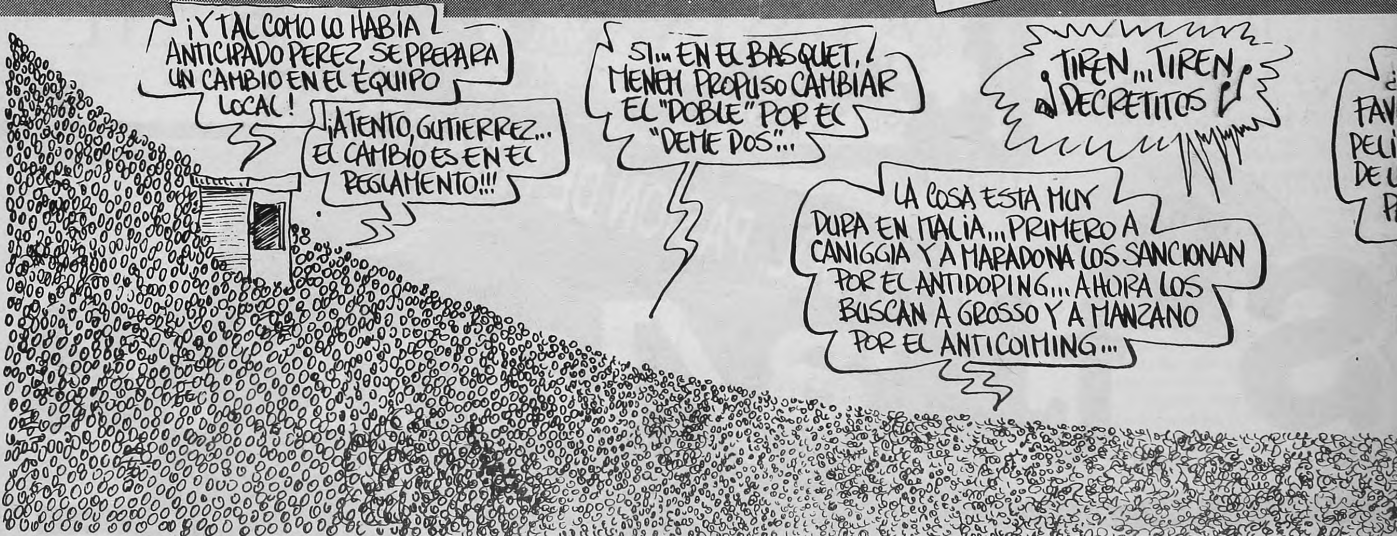 ¡Y TAL COMO LO HABIA
ANTICIPADO PEREZ, SE PREPARA
UN CAMBIO EN EL EQUIPO
LOCAL!
¡ATENTO, GUTIERREZ...
EL CAMBIO ES EN EL
REGLAMENTO!!!
SI... EN EL BASQUET,
MENEM PROPUSO CAMBIAR
EL "DOBLE" POR EL
"DEME DOS"...
TIREN... TIREN
DECRETITOS
LA COSA ESTA MUY
DURA EN ITALIA... PRIMERO A
CANIGGIA Y A MARADONA LOS SANCIONAN
POR EL ANTIDOPING... AHORA LOS
BUSCAN A GROSSO Y A MANZANO
POR EL ANTICOIMING...
PELI
DE L